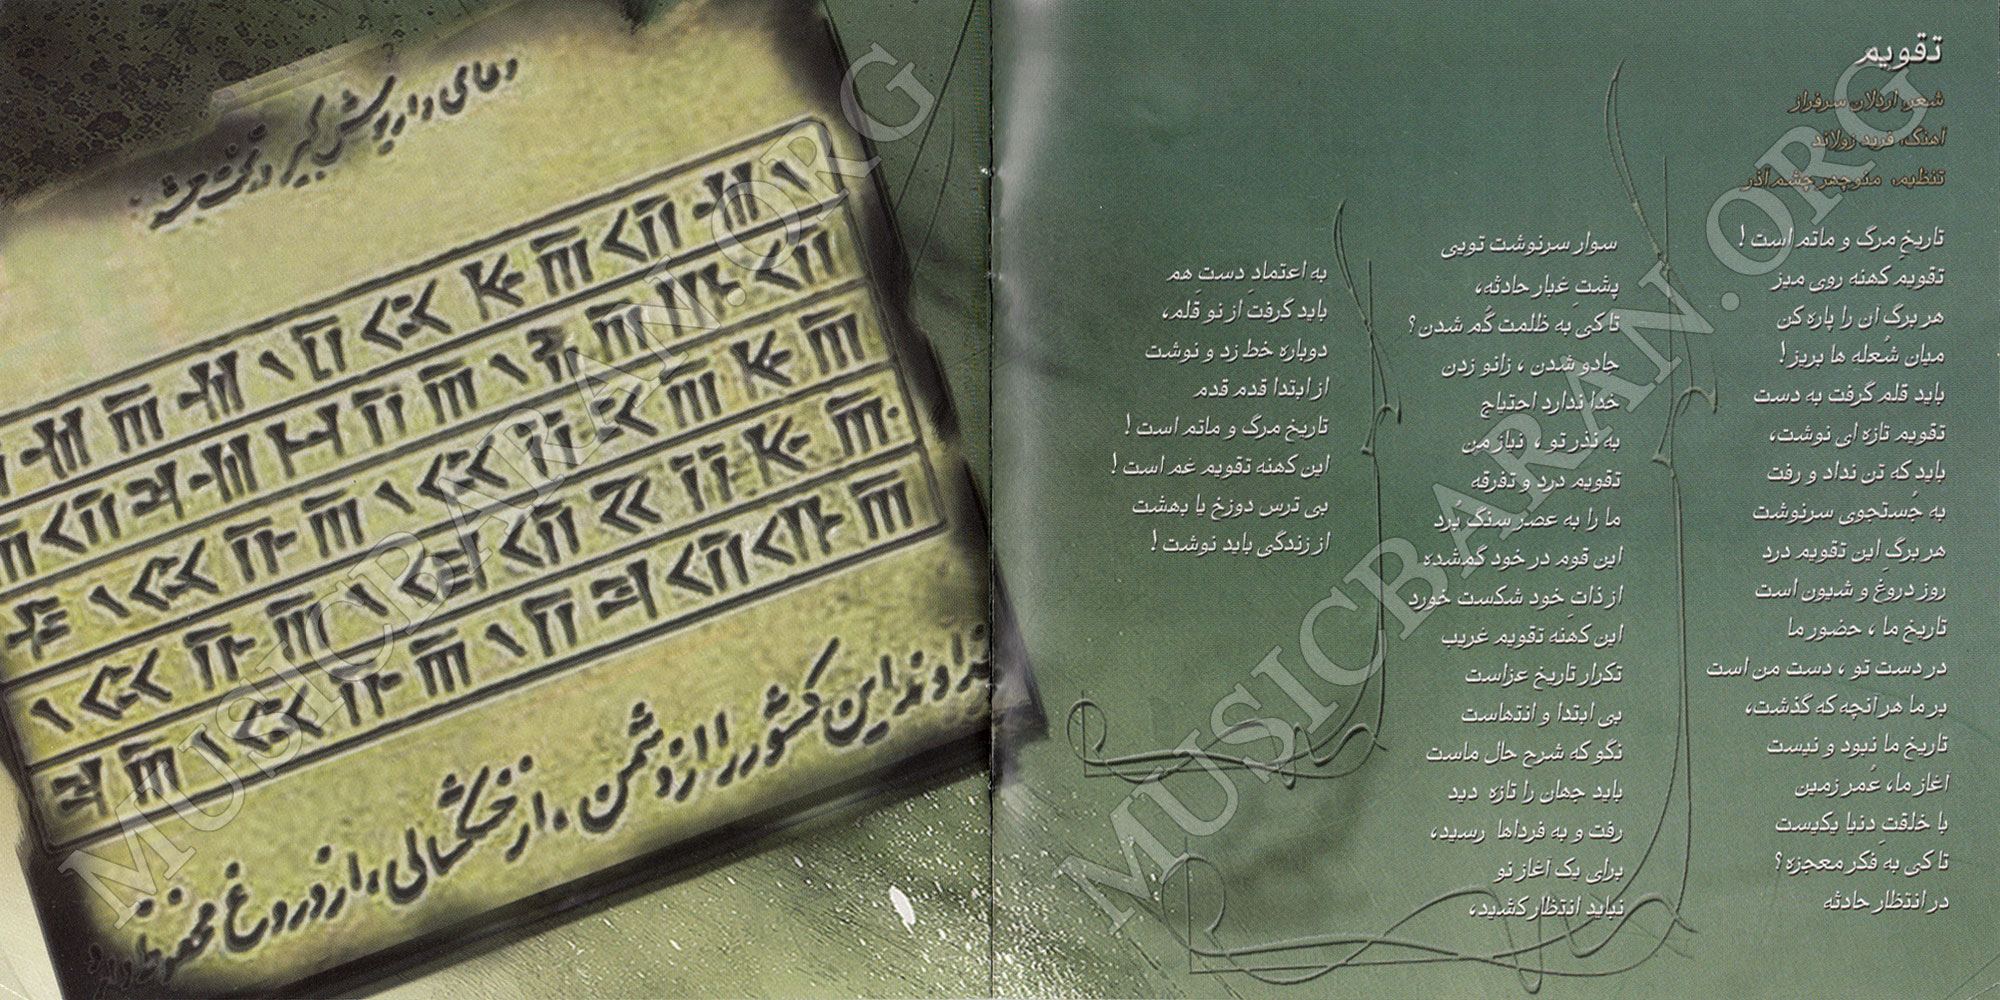 تقویم
شعر: اردلان سرفراز
آهنگ: فرید زولاند
تنظیم: منوچهر چشم آذر
تاریخِ مرگ و ماتم است !
تقویم کهنه روی میز
هر برگِ آن را پاره کن
میان شُعله ها بریز !
باید قلم گرفت به دست
تقویم تازه ای نوشت،
باید که تن نداد و رفت
به جُستجوی سرنوشت
هر برگِ این تقویم درد
روز دروغ و شیون است
تاریخ ما ، حضور ما
در دست تو ، دست من است
بر ما هر آنچه که گذشت،
تاریخ ما نبود و نیست
آغاز ما، عُمر زمین
با خلقتِ دنیا یکیست
تا کی به فکر معجزه ؟
در انتظار حادثه
سوار سرنوشت تویی
پشتِ غبار حادثه،
تا کی به ظلمت گُم شدن ؟
جادو شدن ، زانو زدن
خدا ندارد احتیاج
به نذر تو ، نیاز من
تقویم درد و تفرقه
ما را به عصر سنگ برد
این قوم در خود گمشده
از ذاتِ خود شکست خورد
این کهنه تقویم غریب
تکرار تاریخ عزاست
بی ابتدا و انتهاست
نگو که شرح حال ماست
باید جهان را تازه دید
رفت و به فرداها رسید،
برای یک آغاز نو
نباید انتظار کشید،
به اعتمادِ دستِ هم
باید گرفت از نو قلم،
دوباره خط زد و نوشت
از ابتدا قدم قدم
تاریخ مرگ و ماتم است !
این کهنه تقویم غم است !
بی ترس دوزخ یا بهشت
از زندگی باید نوشت !
دعای داریوش کبیر در تخت جمشید
خداوند این کشور را از دشمن ، از خشکسالی ، از دروغ محفوظ دارد